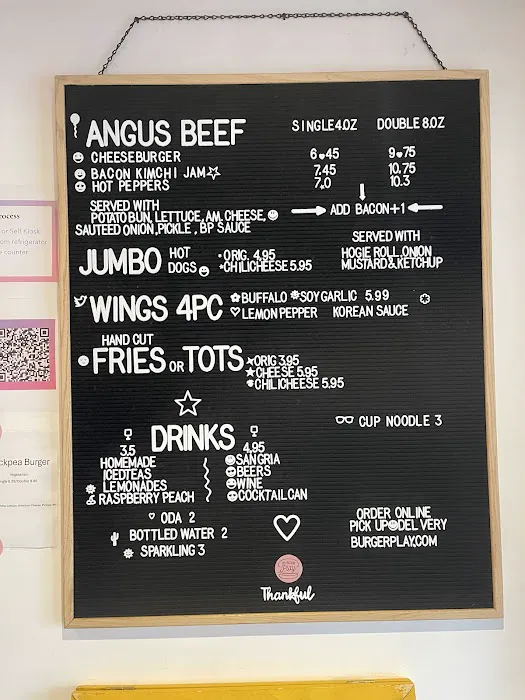 ANGUS BEEF
SINGLE 4.0Z DOUBLE 8.0Z
CHEESEBURGER 6.45 9.75
BACON KIMCHI JAM 7.45 10.75
HOT PEPPERS 7.0 10.3
SERVED WITH
POTATO BUN, LETTUCE, AM. CHEESE,
SAUTEED ONION, PICKLE, BP SAUCE
ADD BACON+1
JUMBO HOT DOGS
ORIG. 4.95
CHILICHEESE 5.95
SERVED WITH
HOGIE ROLL, ONION
MUSTARD & KETCHUP
WINGS 4PC
BUFFALO SOYGARLIC 5.99
LEMON PEPPER KOREAN SAUCE
HAND CUT
FRIES OR TOTS
ORIG 3.95
CHEESE 5.95
CHILICHEESE 5.95
CUP NOODLE 3
DRINKS
3.5
HOMEMADE
ICEDTEAS
LEMONADES
RASPBERRY PEACH
4.95
SANGRIA
BEERS
WINE
COCKTAIL CAN
ODA 2
BOTTLED WATER 2
SPARKLING 3
ORDER ONLINE
PICK UP DEL VERY
BURGERPLAY.COM
Play
Thankful
rocess
or Self Kiosk
om refrigerator
e counter
ckpea Burger